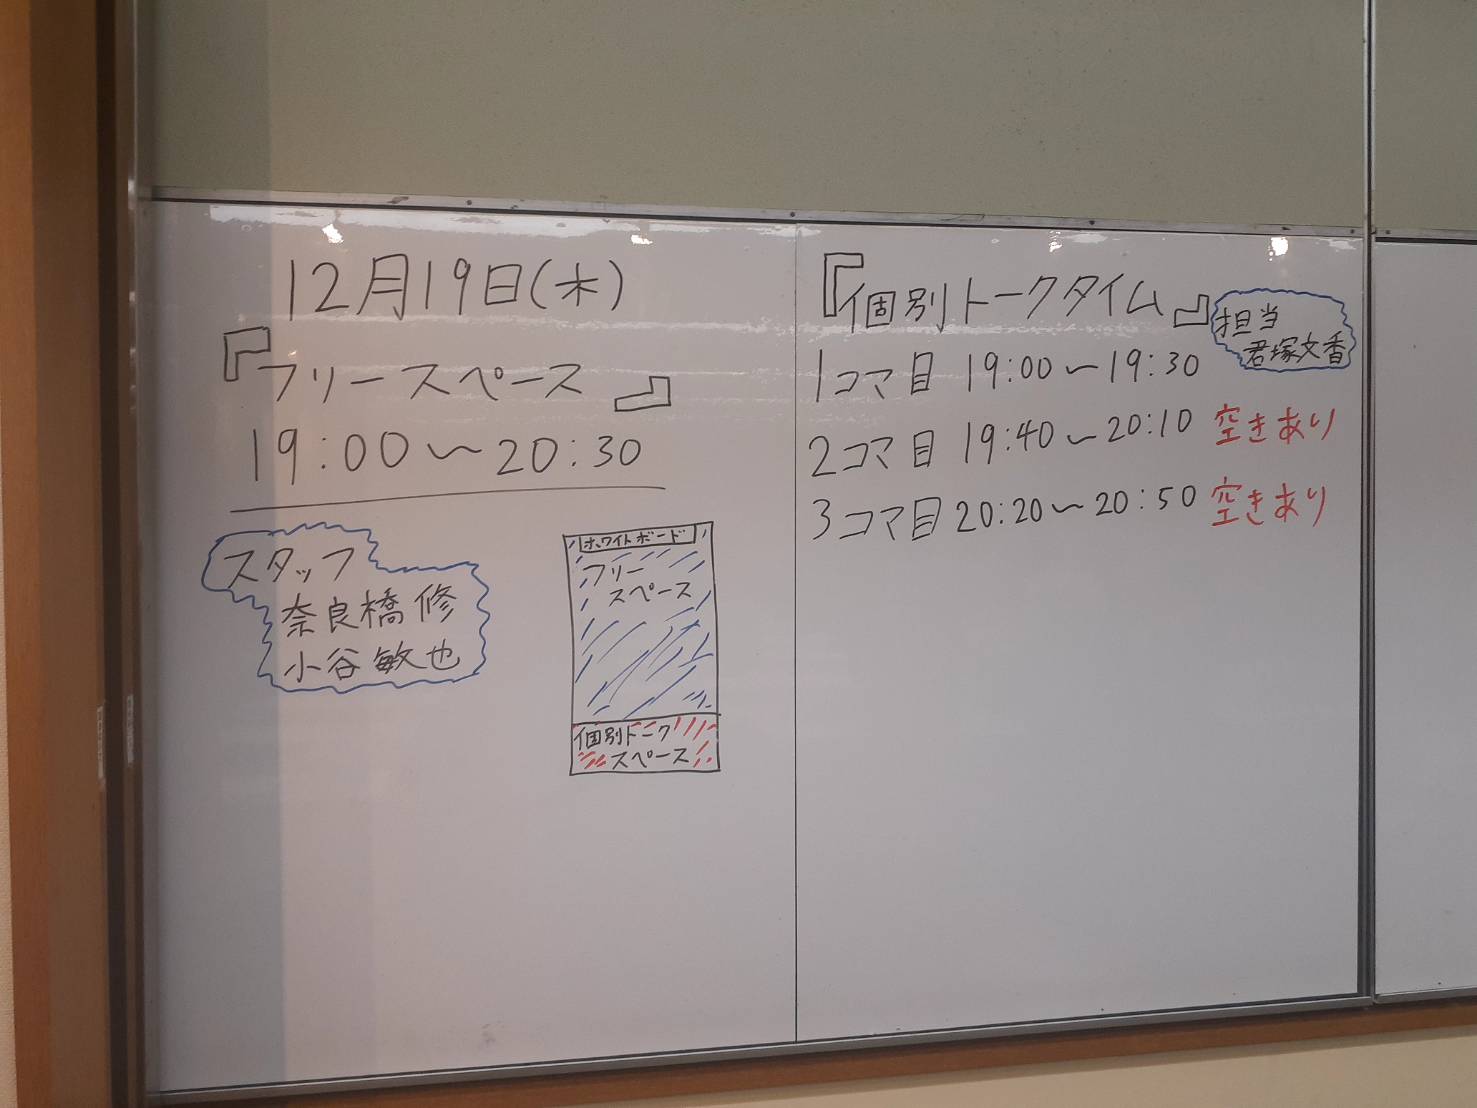 12月19日(木)
『フリースペース』
19:00〜20:30
スタッフ
奈良橋 修
小谷 敏也
ホワイトボード
フリー
スペース
個別トーク
スペース
『個別トークタイム』
担当
君塚文香
1コマ目 19:00〜19:30
2コマ目 19:40〜20:10 空きあり
3コマ目 20:20〜20:50 空きあり